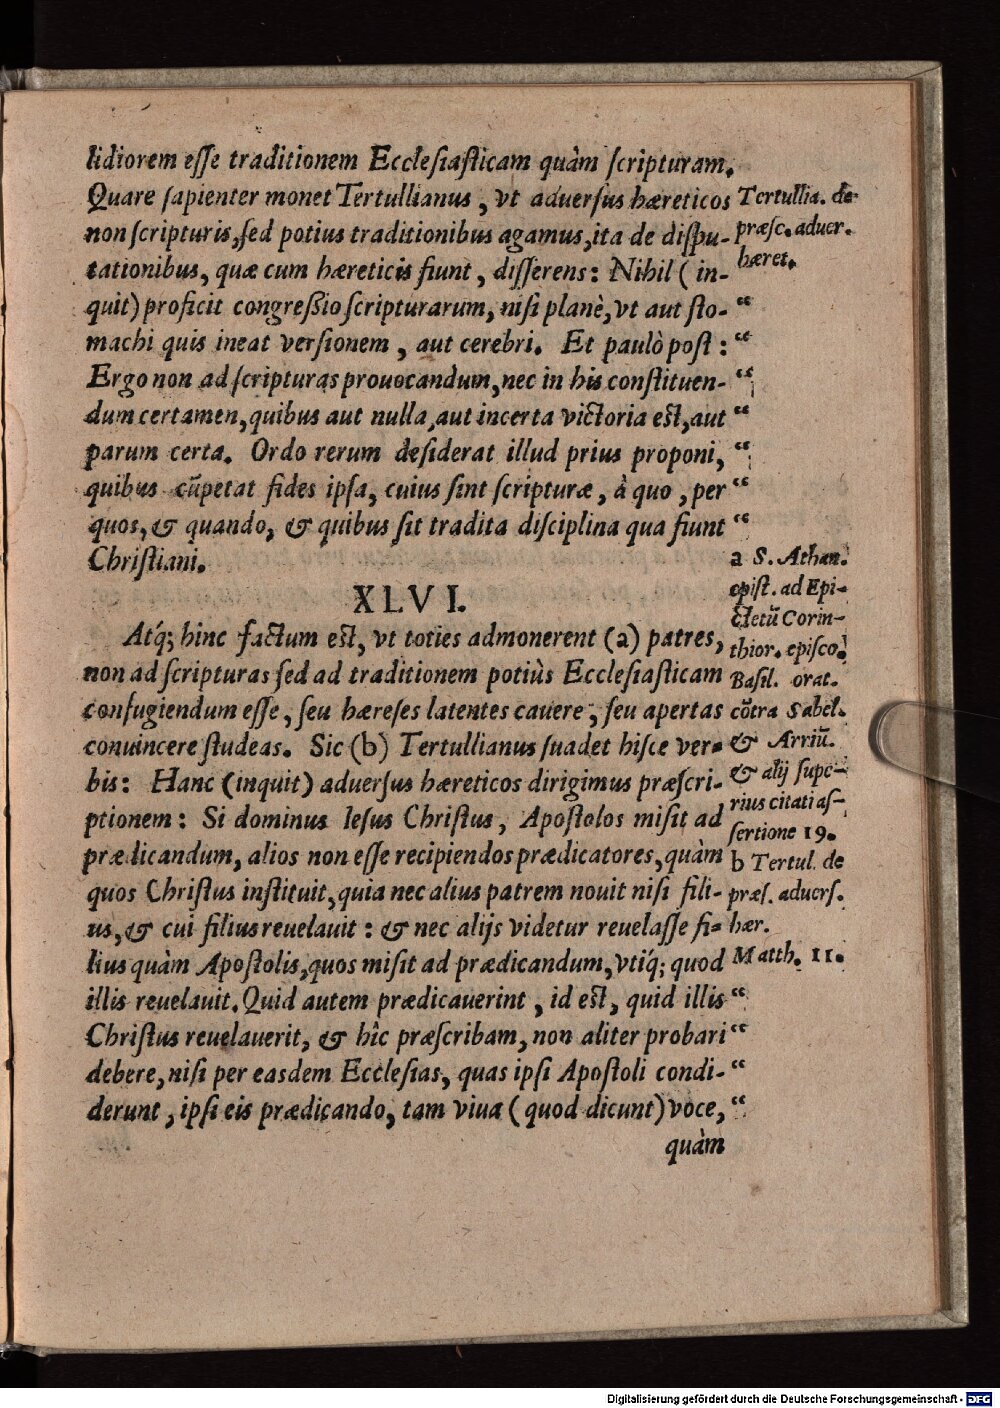 lidiorem eſſe traditionem Eccleſiaſticam quàm ſcripturam.
Quare ſapienter monet Tertullianus, vt aduerſus hæreticos
non ſcripturis, ſed potius traditionibus agamus, ita de diſpu-
tationibus, quæ cum hæreticis fiunt, diſſerens: Nihil (in-
quit) proficit congreßio ſcripturarum, niſi planè, vt aut ſto-
machi quis ineat verſionem, aut cerebri. Et paulò poſt:
Ergo non ad ſcripturas prouocandum, nec in his conſtituen-
dum certamen, quibus aut nulla, aut incerta victoria eſt, aut
parum certa. Ordo rerum deſiderat illud prius proponi,
quibus cũpetat fides ipſa, cuius ſint ſcripturæ, à quo, per
quos, & quando, & quibus ſit tradita diſciplina qua fiunt
Chriſtiani.
Tertullia. de
præſc. aduer.
hæret.
“
“
“
“
“
“
“
XLVI.
Atq́; hinc factum eſt, vt toties admonerent (a) patres,
non ad ſcripturas ſed ad traditionem potiùs Eccleſiaſticam
confugiendum eſſe, ſeu hæreſes latentes cauere, ſeu apertas
conuincere ſtudeas. Sic (b) Tertullianus ſuadet hiſce ver-
bis: Hanc (inquit) aduerſus hæreticos dirigimus præſcri-
ptionem: Si dominus Ieſus Chriſtus, Apoſtolos miſit ad
prædicandum, alios non eſſe recipiendos prædicatores, quàm
quos Chriſtus inſtituit, quia nec alius patrem nouit niſi fili-
us, & cui filius reuelauit: & nec alijs videtur reuelaſſe fi-
lius quàm Apoſtolis, quos miſit ad prædicandum, vtiq́; quod
illis reuelauit. Quid autem prædicauerint, id eſt, quid illis
Chriſtus reuelauerit, & hîc præſcribam, non aliter probari
debere, niſi per easdem Eccleſias, quas ipſi Apoſtoli condi-
derunt, ipſi eis prædicando, tam viua (quod dicunt) voce,
quàm
a S. Athan.
epiſt. ad Epi-
ctetũ Corin-
thior. epiſco.
Baſil. orat.
cõtra Sabel.
& Arriũ.
& alij ſupe-
rius citati aſ-
ſertione 19.
b Tertul. de
præſ. aduerſ.
hær.
Matth. 11.
“
“
“
“
Digitalisierung gefördert durch die Deutsche Forschungsgemeinschaft - DFG